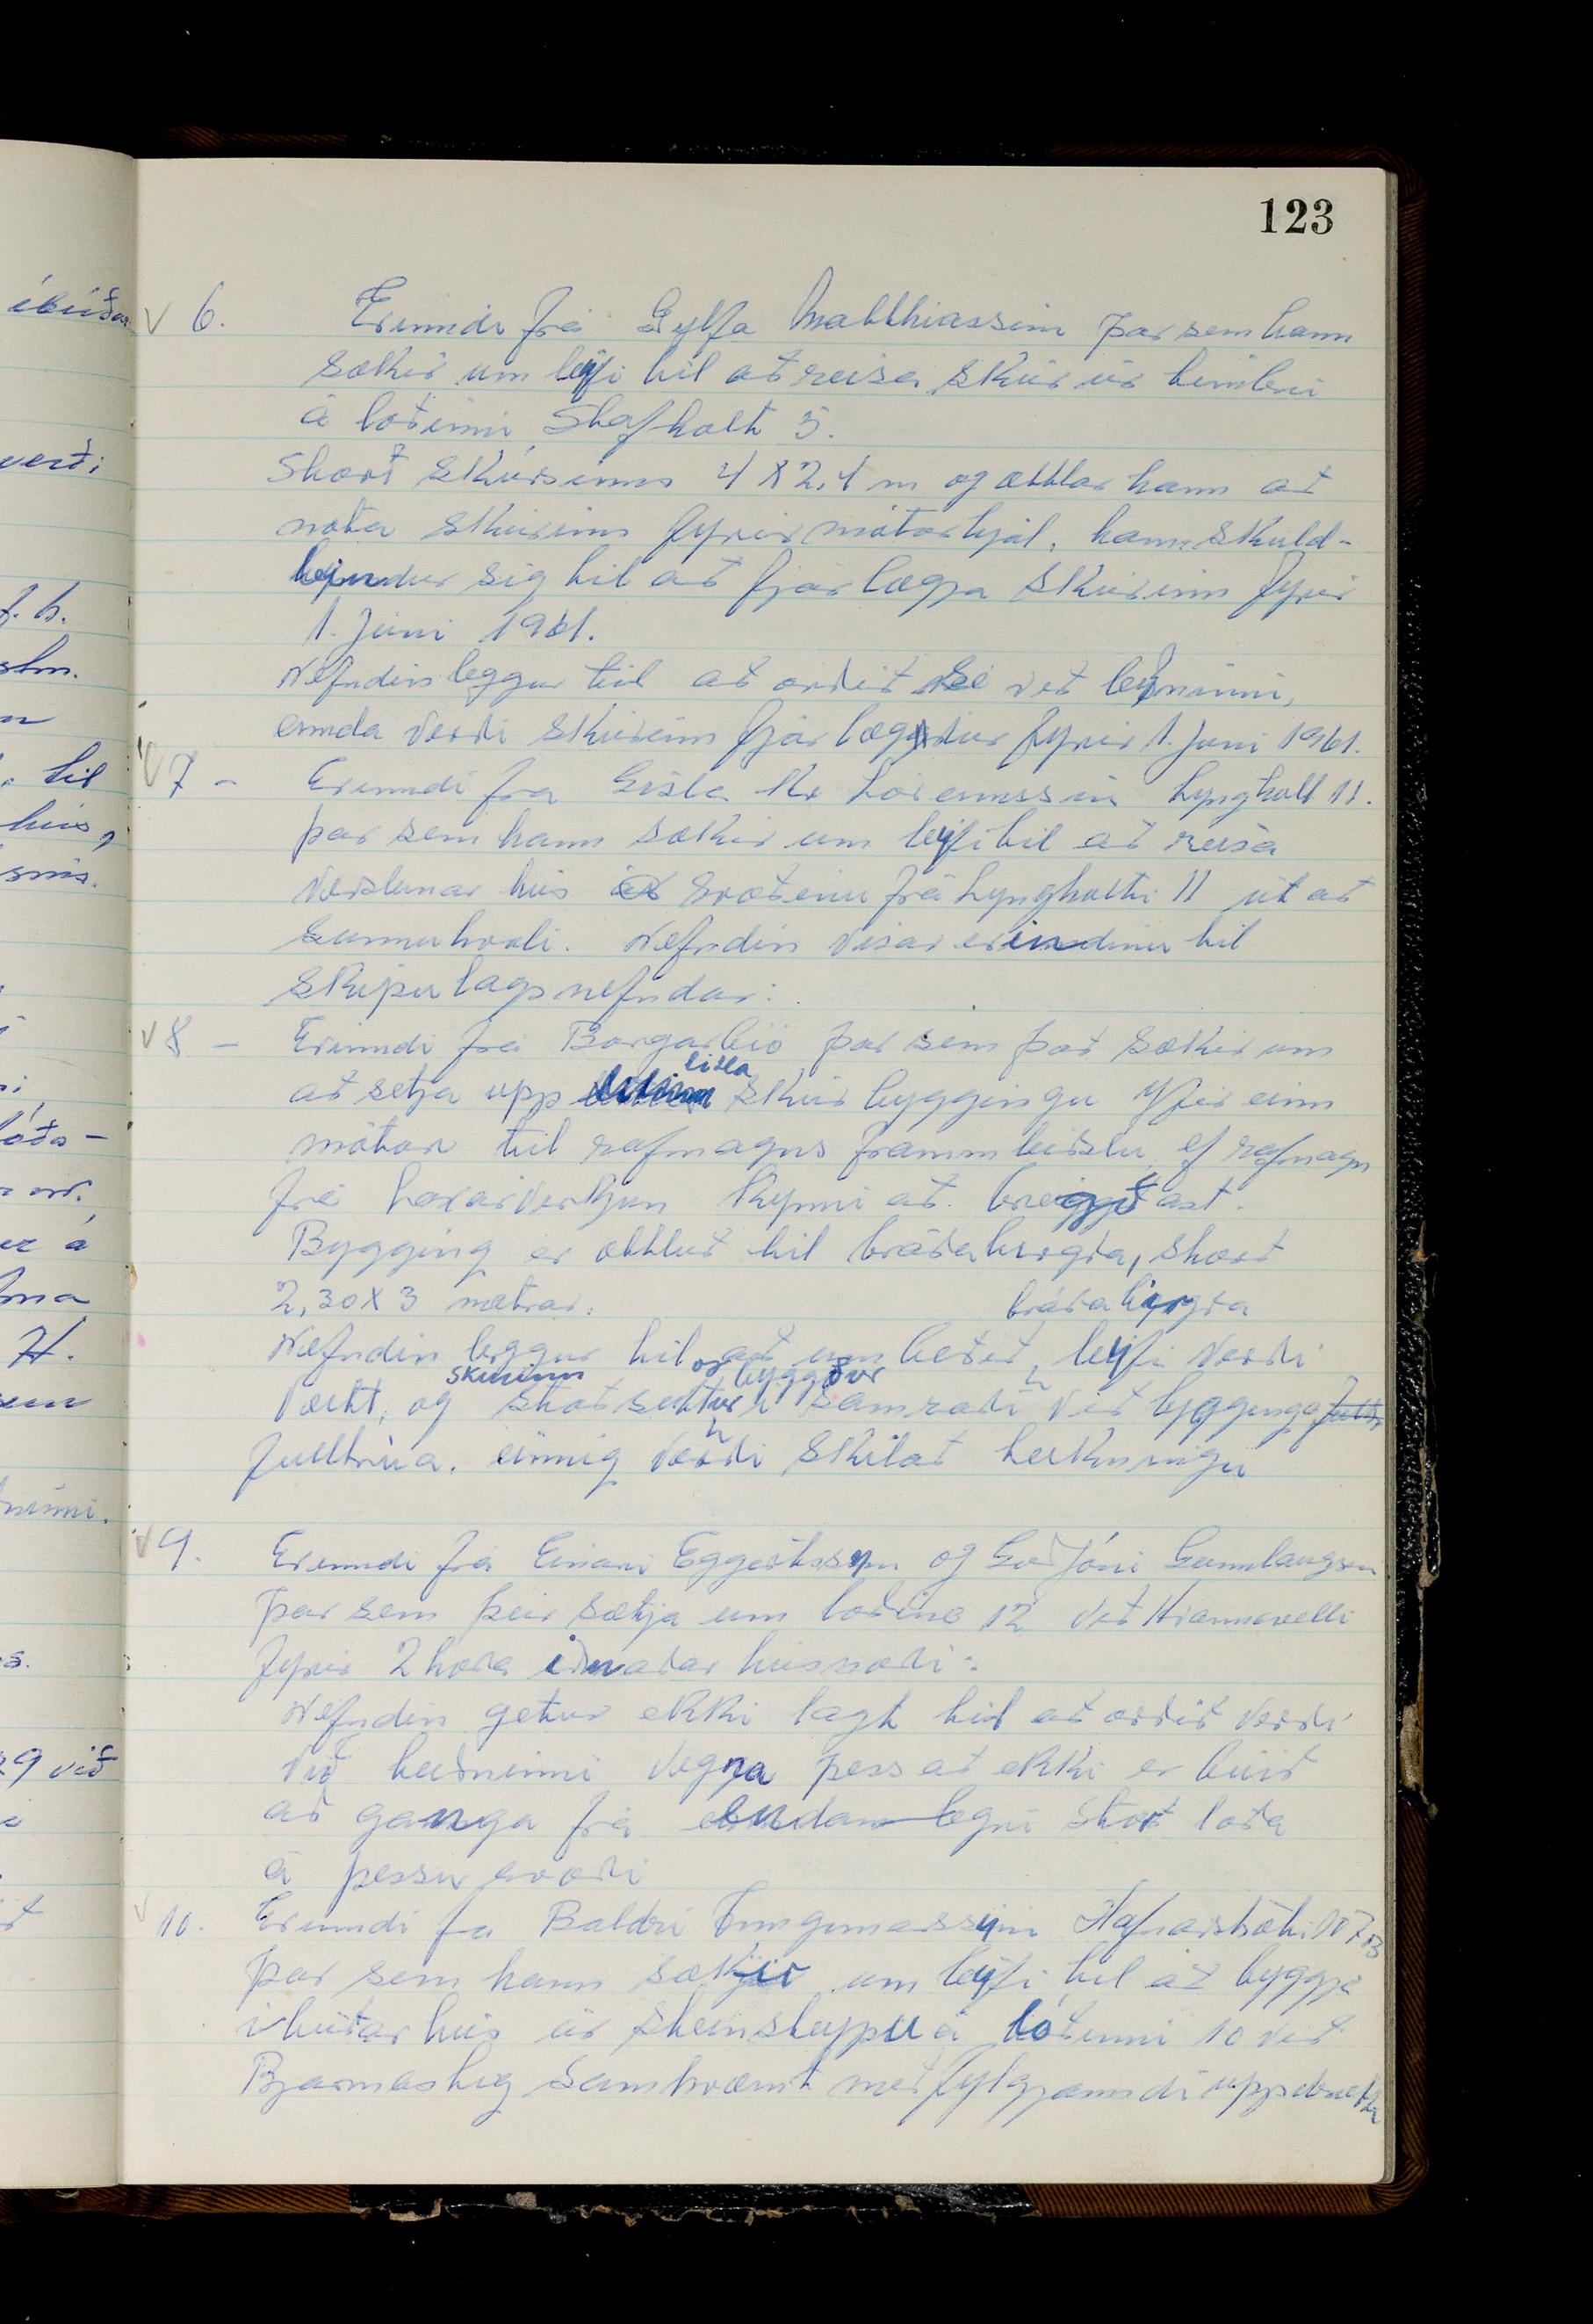 123
6. Erinndi frá Gylfa Matthiassini þar sem hann
sækir um leyfi til að reisa skúr úr timbri
á lóðinni Stafholt 5.
Stærð skúrsinns 4 x 2,4 m og ættlar hann að
nota skúrinn fyrir mótorhjól, hann skuld-
byndur sig til að fjárlægja skúrinn fyrir
1. Juni 1961.
Nefndin leggur till að orðið sé við beyðninni,
ennda verði skúrinn fjárlægdur fyrir 1. Juni 1961.
7 - Erinndi fra Gisla Kr Lorennssini Lyngholt 11.
þar sem hann sækir um leyfi til að reisa
verslunar hús á svæðinu frá Lyngholti 11 út að
Sunnuhvoli. Nefndin vísar erindinu til
skipulagsnefndar.
8 - Erinndi frá Borgarbíó þar sem það sækir um
að setja upp litla skúrbyggingu yfir einn
mótor till rafmagns frammleiðslu, ef rafmagn
frá Laxárvirkjun kynni að bregðast.
Bygging er ættluð til bráðabirgða, stærð
2,30 x 3 metrar.
Nefndin leggur til að umbeðið bráðabirgða leyfi verði
veitt, og skúrinn staðsettur og byggður í samráði við byggingar
fulltrúa. einnig verði skilað teikningu
9. Erinndi frá Einari Eggertssyni og Guðjóni Gunnlaugssn
þar sem þeir sækja um lóð no 12 við Hrannarvelli
fyrir 2 hæða iðnaðar húsnæði.
Nefndin getur ekki lagt til að orðið verði
við beiðninni vegna þess að ekki er búið
að ganga frá endanlegri stærð lóða
á þessu svæði
10. Erinndi fra Baldri Ingimarssyni Hafnarstræti 107 B
þar sem hann sækir um leyfi til að byggja
íbúðarhús úr steinsteypu á lóðinni 10 við
Bjarmastig Samkvæmt meðfylgjanndi uppdrætti